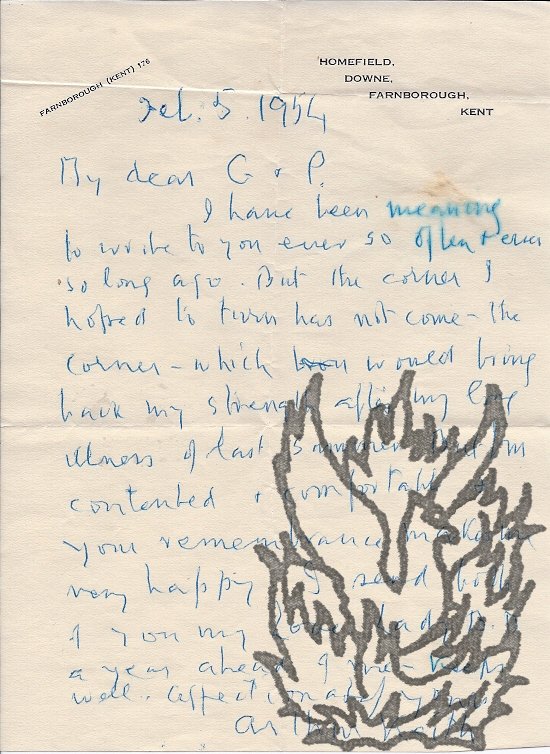 FARNBOROUGH (KENT) 126
HOMEFIELD,
DOWNE,
FARNBOROUGH,
KENT
Feb. 5. 1954
My dear G & P.
I have been meaning
to write to you ever so often & ever
so long ago. But the corner I
hoped to turn has not come – the
corner – which would bring
back my strength after my long
illness of last summer. But I'm
contented & comfortable &
your remembrance makes me
very happy. I send both
of you my love
a year ahead. I
well. affectionately yours
Arthur Keith